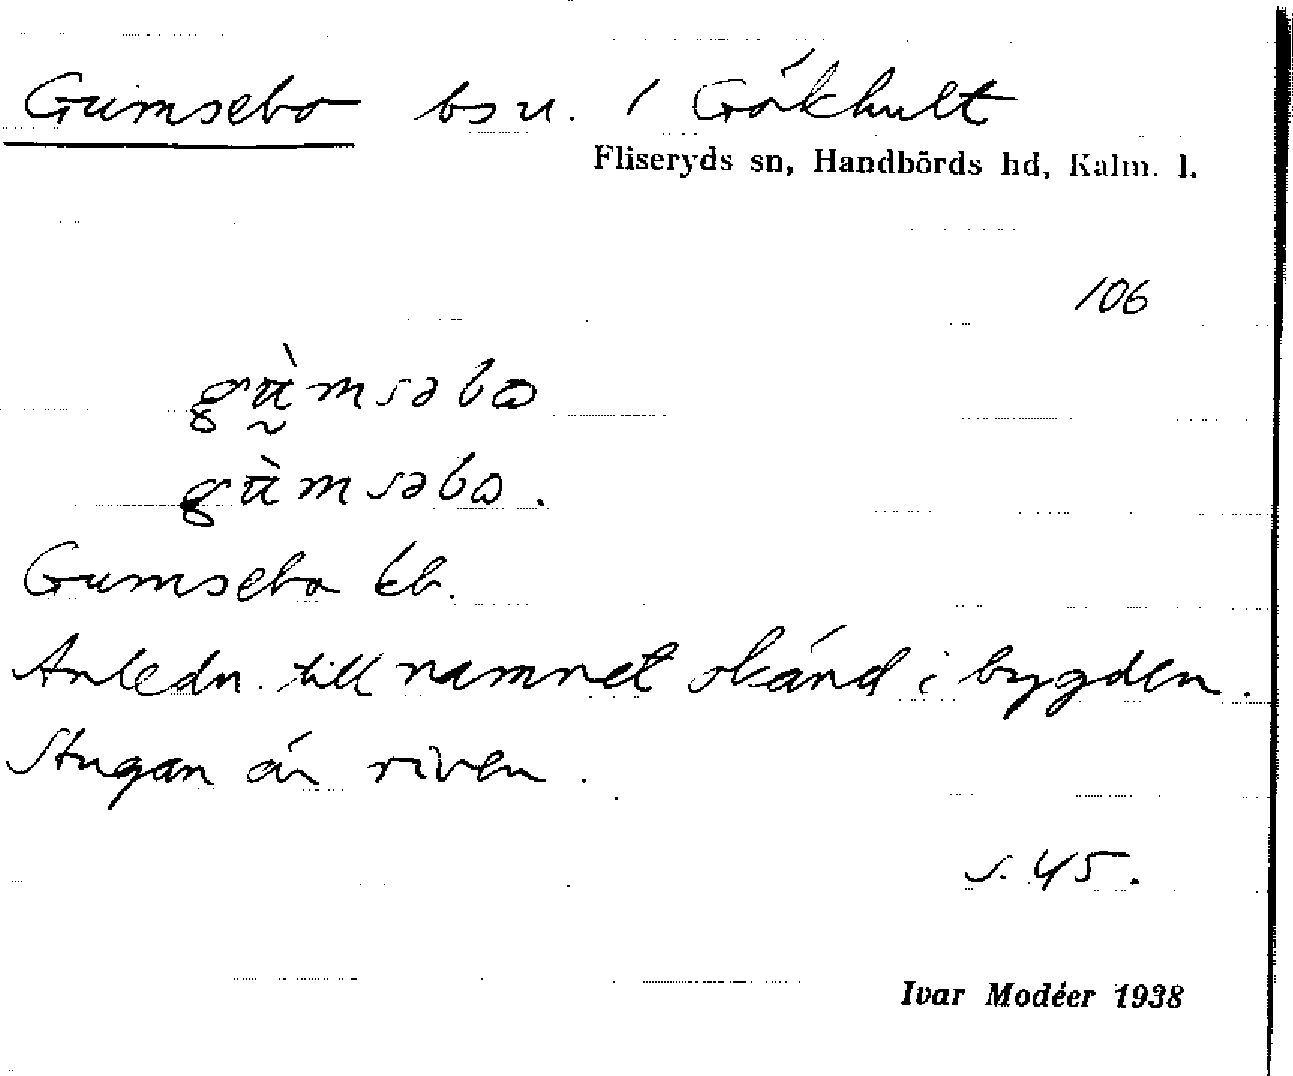 Gumsebo bs u. / Gökhult
Fliseryds sn, Handbörds hd, Kalm. l.
106
gṵ̀msəbɷ
gùmsəbɷ.
Gumsebo kb.
Anledn. till namnet okänd i bygden.
Stugan är riven.
s. 45.
Ivar Modéer 1938